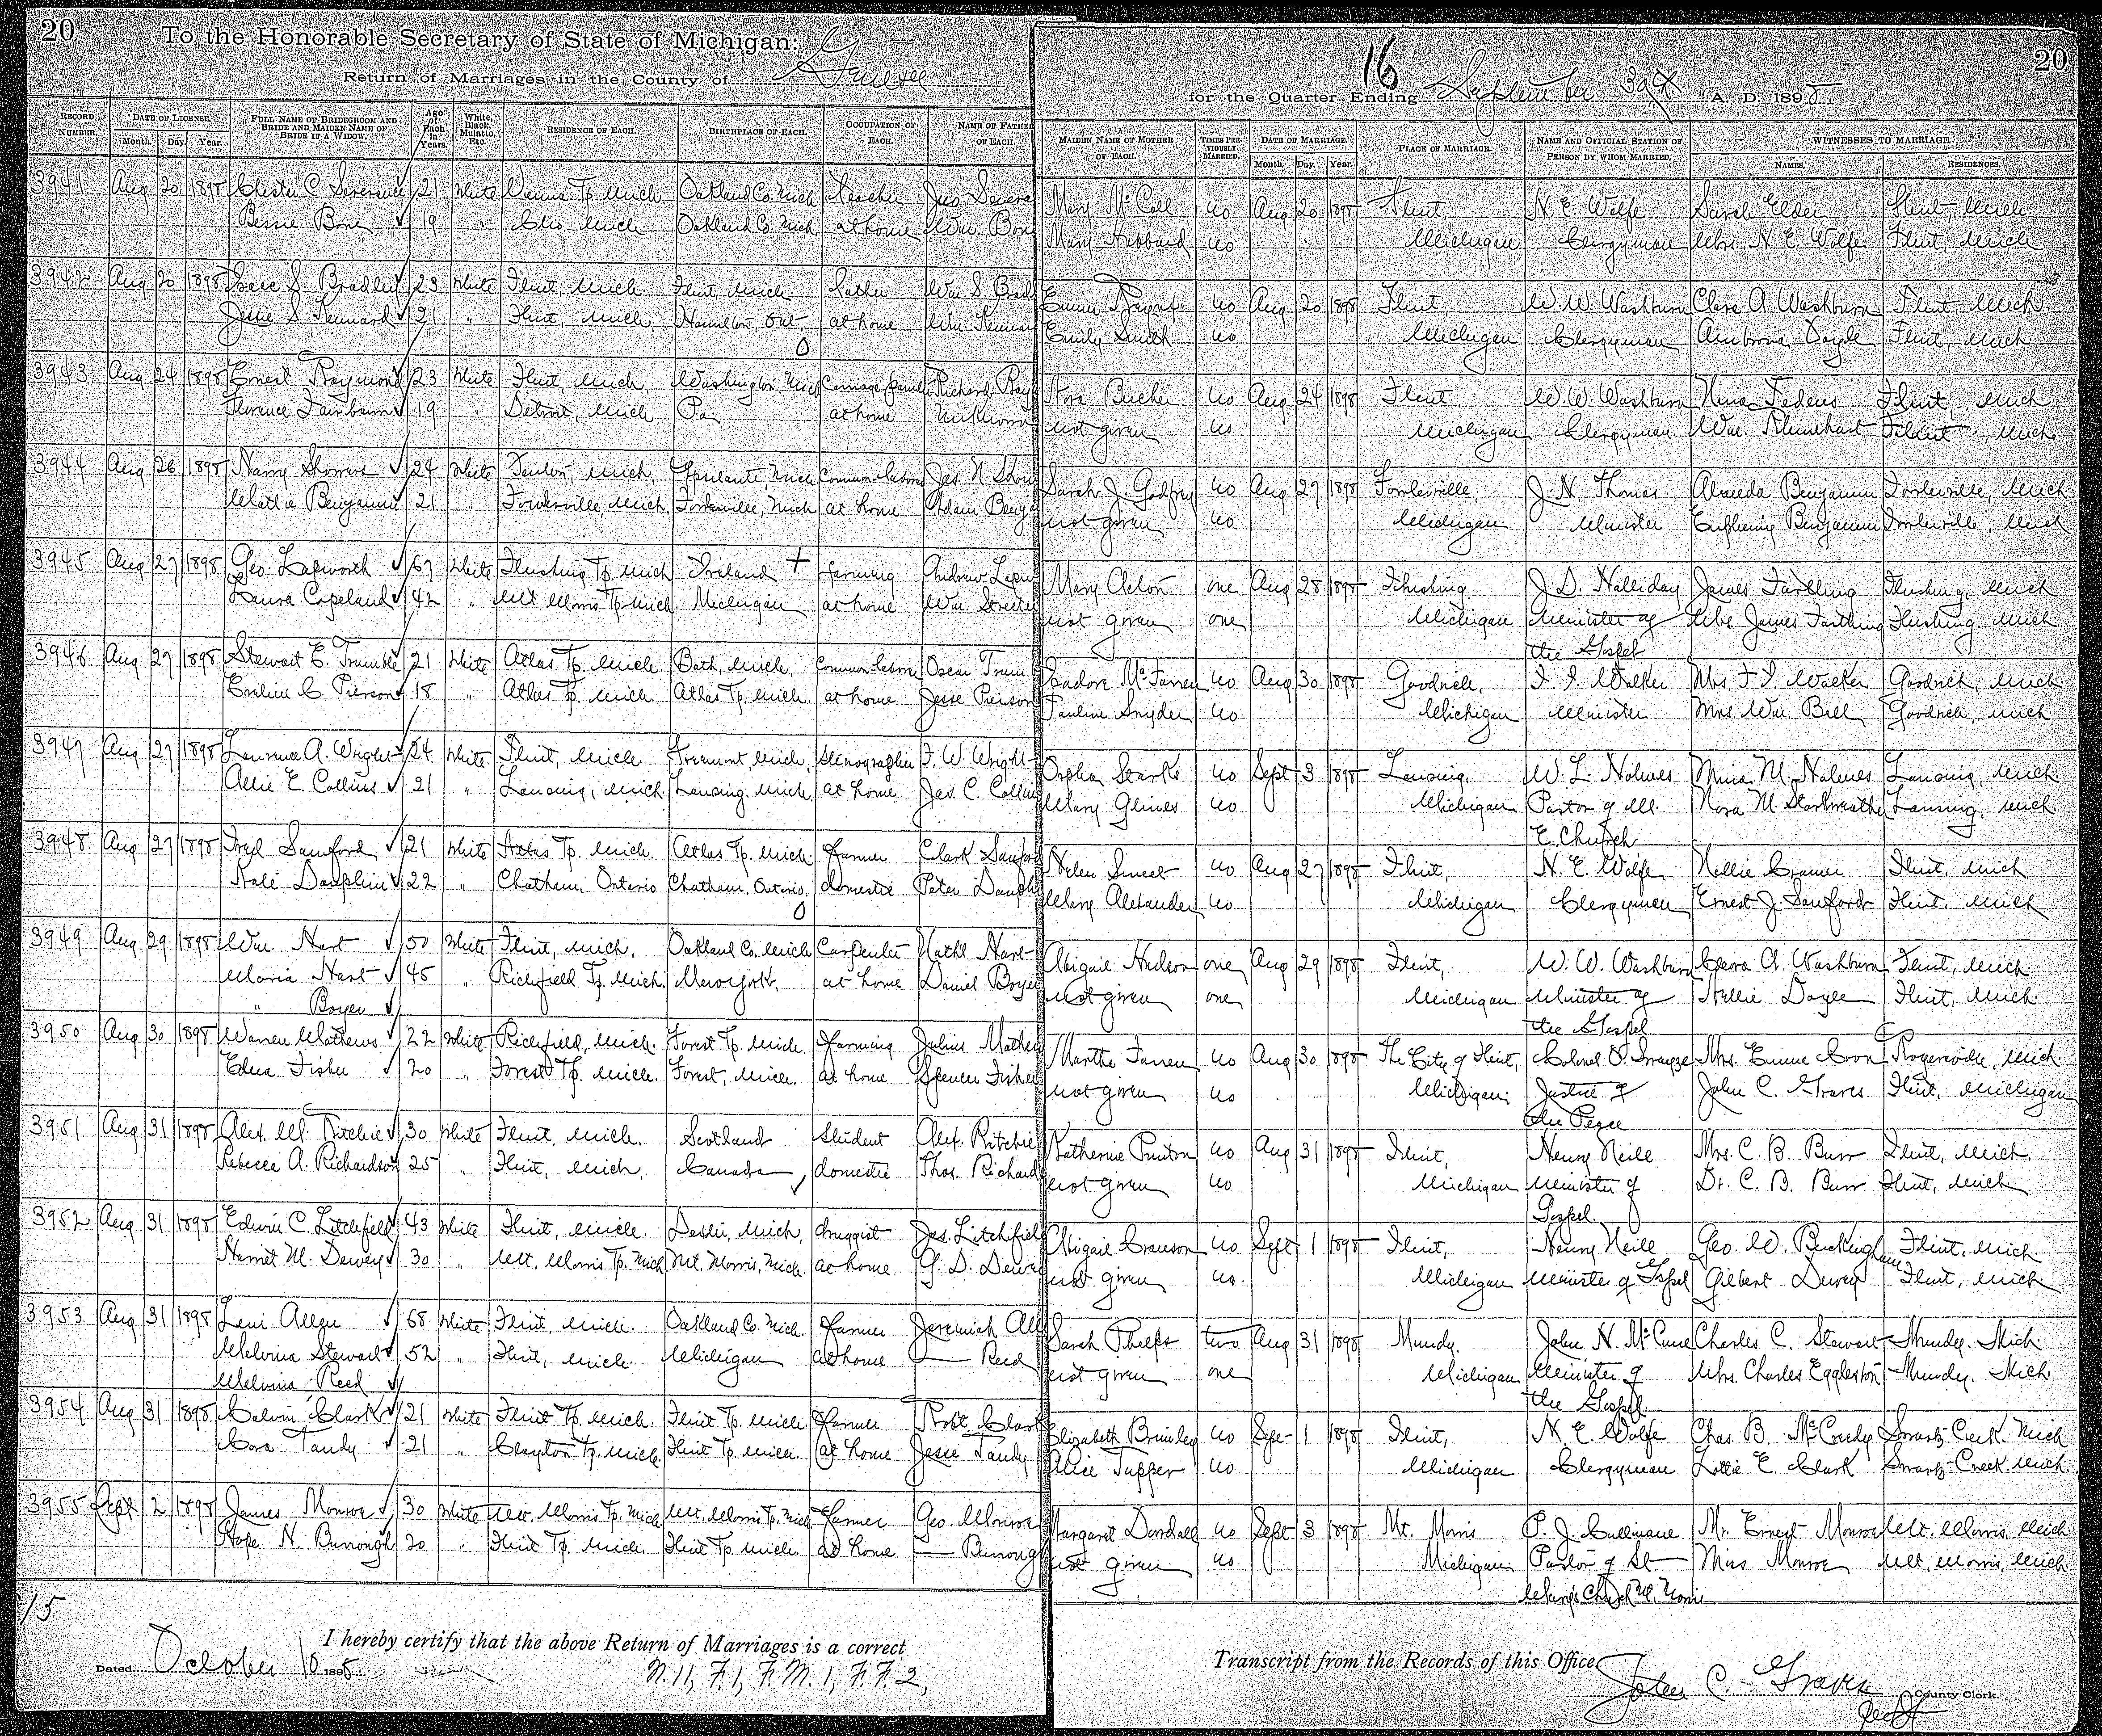 20 To the Honorable Secretary of State of Michigan: 16 20
Return of Marriages in the County of Genesee for the Quarter Ending September 30th A. D. 1898
RECORD NUMBER. DATE OF LICENSE. Month. Day. Year. FULL NAME OF BRIDEGROOM AND BRIDE AND MAIDEN NAME OF BRIDE IF A WIDOW. Age of Each in Years. White, Black, Mulatto, Etc. RESIDENCE OF EACH. BIRTHPLACE OF EACH. OCCUPATION OF EACH. NAME OF FATHER OF EACH. MAIDEN NAME OF MOTHER OF EACH. TIMES PREVIOUSLY MARRIED. DATE OF MARRIAGE. Month. Day. Year. PLACE OF MARRIAGE. NAME AND OFFICIAL STATION OF PERSON BY WHOM MARRIED. WITNESSES TO MARRIAGE. NAMES. RESIDENCES.
3941 Aug 20 1898 Chester C. Severance 21 White Vienna Tp. Mich. Oakland Co. Mich Teacher Jno Severa Mary McCall no Aug 20 1898 Flint, N. E. Wolfe Sarah Elder Flint, Mich.
Bessie Bone 19 " Clio Mich Oakland Co. Mich at home Wm. Bone Mary Hubbard no Michigan Clergyman Mrs. N. E. Wolfe Flint, Mich
3942 Aug 20 1898 Isaac S. Bradley 23 White Flint, Mich Flint, Mich. Lather Wm. S. Brad Emma no Aug 20 1898 Flint, W. W. Washburn Clara A. Washburn Flint, Mich.
Jessie S. Kennard 21 " Flint, Mich Hamilton, Ont. at home Wm. Kennar Emily Smith no Michigan Clergyman Ambrosia Doyle Flint, Mich
3943 Aug 24 1898 Ernest Raymond 23 White Flint, Mich Washington Mich Carriage Richard Ray Nora Bucher no Aug 24 1898 Flint, W. W. Washburn Flint, Mich
Florence Fairbairn 19 " Detroit, Mich. Pa at home unknown not given no Michigan Clergyman Wm. Rhinehart Flint, Mich.
3944 Aug 26 1898 Harry Showers 24 White Fenton, Mich. Ypsilanti, Mich Common labor Jas. N. Show Sarah J. Godfrey no Aug 27 1898 Fowlerville, J. N. Thomas Almeda Benjamin Fowlerville, Mich
Mattie Benjamin 21 " Fowlerville, Mich. Fowlerville, Mich at home Adam Benja not given no Michigan Minister Benjamin Fowlerville, Mich
3945 Aug 27 1898 Geo. Lapworth 67 White Flushing Tp. Mich Ireland + farming Andrew Lapw Mary Acton one Aug 28 1898 Flushing J. D. Halliday James Farthing Flushing, Mich
Laura Copeland 42 " Mt Morris Tp. Mich. Michigan at home Wm. Streeter not given one Michigan Minister of Mrs. James Farthing Flushing. Mich
the Gospel
3946 Aug 27 1898 Stewart E. Trumble 21 White Atlas Tp. Mich. Bath, Mich. Common labor Oscar Trum Isadore McFarren no Aug 30 1898 Goodrich, F. I. Walker Mrs F I Walker Goodrich, Mich
Eveline C. Pierson 18 " Atlas Tp. Mich Atlas Tp. Mich. at home Jesse Pierson Pauline Snyder no Michigan Minister Mrs Wm Bell Goodrich, Mich
3947 Aug 27 1898 Laurence A. Wright 24 White Flint, Mich Fremont, Mich. Stenographer F. W. Wright Orpha Starks no Sept 3 1898 Lansing, W. L. Holmes Mina M. Holmes Lansing, Mich
Allie E. Collins 21 " Lansing, Mich. Lansing, Mich at home Jas. C. Collins Mary Glines no Michigan Pastor of M. Nora M. Starkweather Lansing, Mich.
E. Church
3948 Aug 27 1898 Fred Sanford 21 White Atlas Tp. Mich. Atlas Tp. Mich. farmer Clark Sanford Helen Sweet no Aug 27 1898 Flint, N. E. Wolfe Nellie Cramer Flint, Mich
Kate Dauphin 22 " Chatham, Ontario Chatham, Ontario domestic Peter Dauph Mary Alexander no Michigan Clergyman Ernest J. Sanford Flint, Mich
3949 Aug 29 1898 Wm. Hart 50 White Flint, Mich. Oakland Co. Mich Carpenter Nathl Hart Abigail Hudson one Aug 29 1898 Flint, W. W. Washburn Clara A. Washburn Flint, Mich.
Maria Hart 45 " Richfield Tp. Mich. New York. at home Daniel Boyer not given one Michigan Minister of Nellie Doyle Flint, Mich
" Boyer the Gospel
3950 Aug 30 1898 Warren Mathews 22 White Richfield, Mich. Forest Tp. Mich. farming Julius Mathew Martha Farren no Aug 30 1898 The City of Flint, Colonel O. Mrs. Emma Coon Rogersville, Mich
Edna Fisher 20 " Forest Tp. Mich. Forest, Mich. at home Spencer Fisher not given no Michigan. Justice of John C. Graves Flint, Michigan
the Peace
3951 Aug 31 1898 Alex. M. Ritchie 30 White Flint, Mich. Scotland Student Alex. Ritchie Katherine no Aug 31 1898 Flint, Henry Neill Mrs. C. B. Burr Flint, Mich.
Rebecca A. Richardson 25 " Flint, Mich. Canada domestic Thos. Richard not given no Michigan Minister of Dr. C. B. Burr Flint, Mich.
Gospel.
3952 Aug 31 1898 Edwin C. Litchfield 43 White Flint, Mich. Dexter, Mich. druggist Jas. Litchfield Abigail no Sept 1 1898 Flint, Henry Neill Geo. W. Buckingham Flint, Mich
Harriet M. Dewey 30 " Mt. Morris Tp. Mich Mt. Morris, Mich. at home G. D. Dewe not given no Michigan Minister of Gospel Gilbert Dewey Flint, Mich
3953 Aug 31 1898 Levi Allen 68 White Flint, Mich. Oakland Co. Mich. farmer Jeremiah All Sarah Phelps two Aug 31 1898 Mundy. John N. McCune Charles C. Stewart Mundy. Mich
Melvina Stewart 52 " Flint, Mich. Michigan at home — Reed not given one Michigan Minister of Mrs. Charles Eggleston Mundy. Mich
Melvina Reed the Gospel.
3954 Aug 31 1898 Calvin Clark 21 White Flint Tp. Mich. Flint Tp. Mich farmer Robt. Clark Elizabeth Brimley no Sept 1 1898 Flint, N. E. Wolfe Chas. B. McCurdy Swartz Creek. Mich
Cora Tandy 21 " Clayton Tp. Mich. Flint Tp. Mich at home Jesse Tandy Alice Tupper no Michigan Clergyman Lottie E. Clark Swartz Creek Mich
3955 Sept 2 1898 James Monroe 30 White Mt. Morris Tp. Mich. Mt. Morris Tp. Mich farmer Geo. Monroe Margaret no Sept 3 1898 Mt. Morris P. J. Cullinane Mr. Ernest Monroe Mt. Morris, Mich.
Hope N. Burrough 20 " Flint Tp. Mich Flint Tp. Mich at home — Burrough not given no Michigan. Pastor of St Miss Monroe Mt. Morris, Mich.
Mary's Church Mt. Morris
15
I hereby certify that the above Return of Marriages is a correct Transcript from the Records of this Office
Dated October 10 1898 N. 11, F. 1, F. M. 1, F. F. 2, John C. Graves County Clerk.